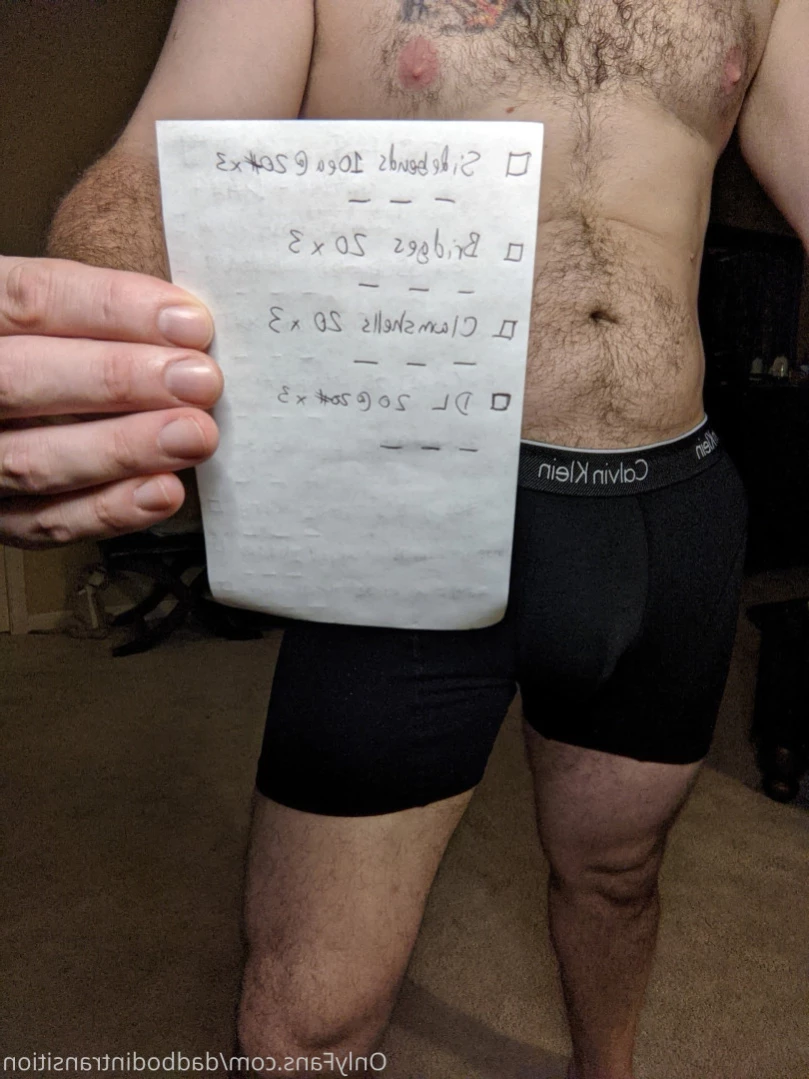 Sidebends 10ea @ 20# x3
_ _ _
Bridges 20 x 3
_ _ _
Clamshells 20 x 3
_ _ _
DL 20 @ 20# x3
_ _ _
Calvin Klein
Klein
OnlyFans.com/dadbodintransition